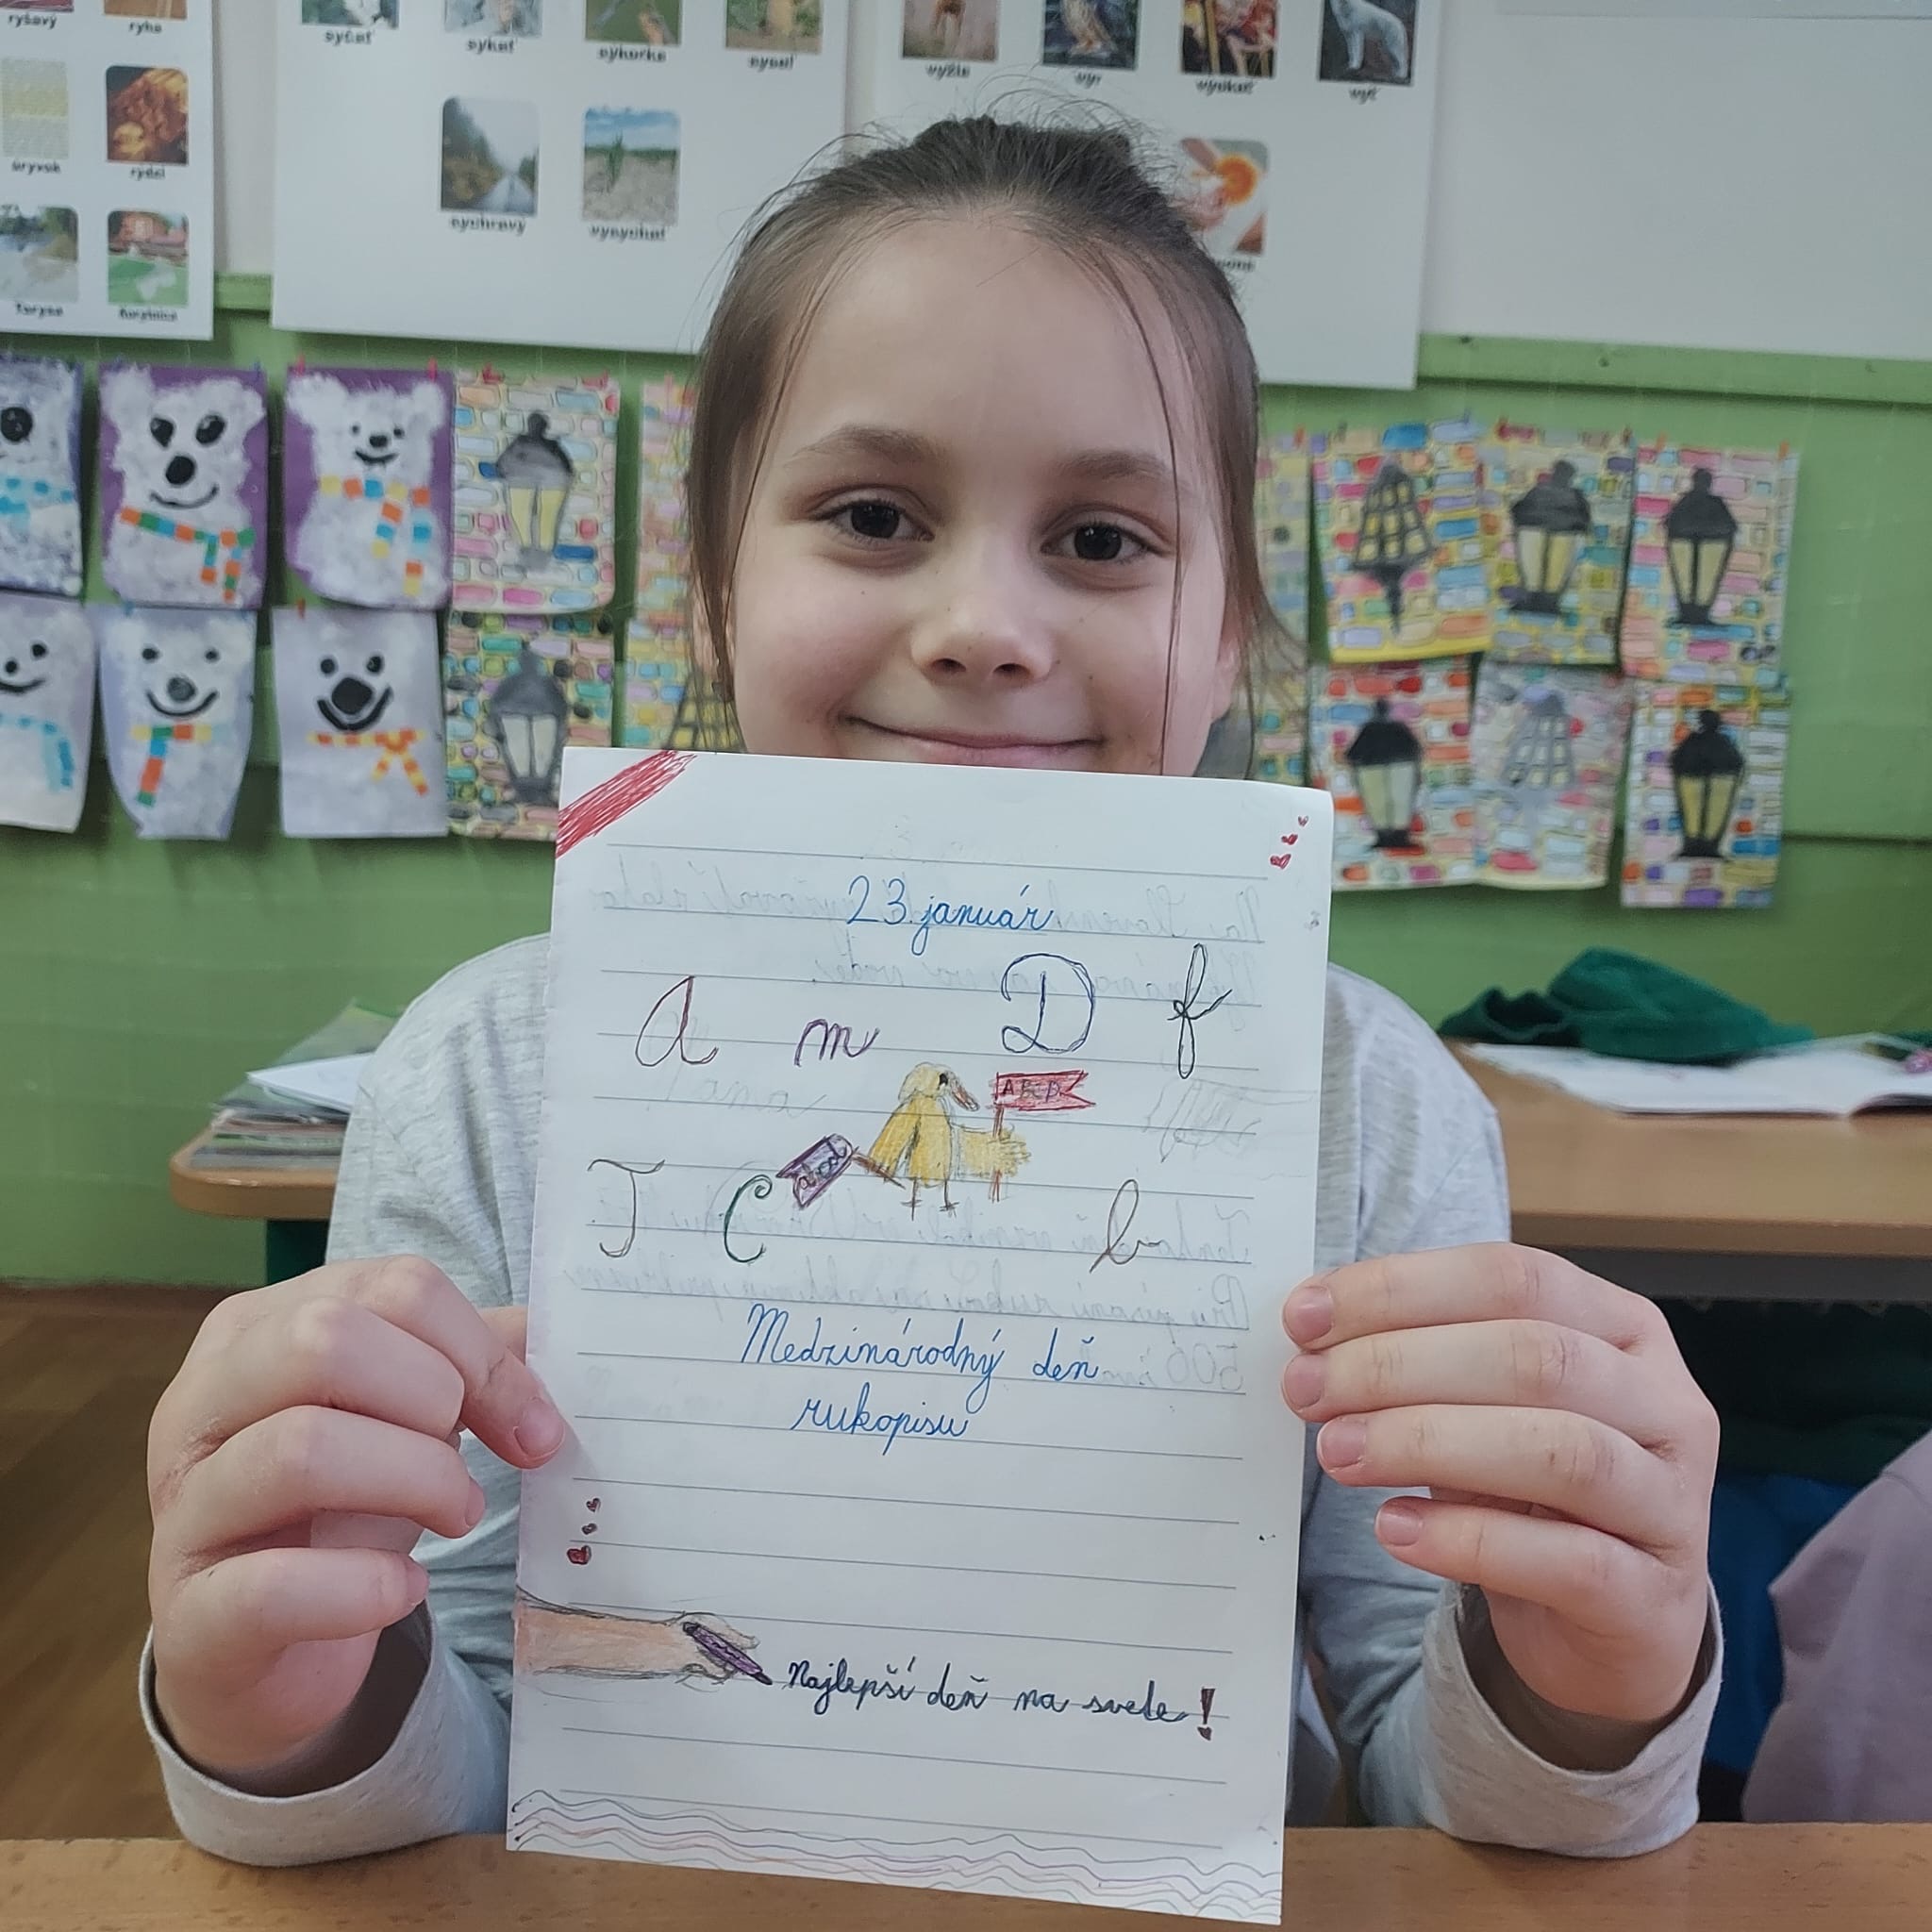 ryšavý ryha
syčať sykať sýkorka sysaľ
vyžla výr výskať vyť
úryvok rýdzi
sychravý vysychať
Torysa
23. január
A m D f
ABCD
abcd
J C b
Medzinárodný deň
rukopisu
Najlepší deň na svete!